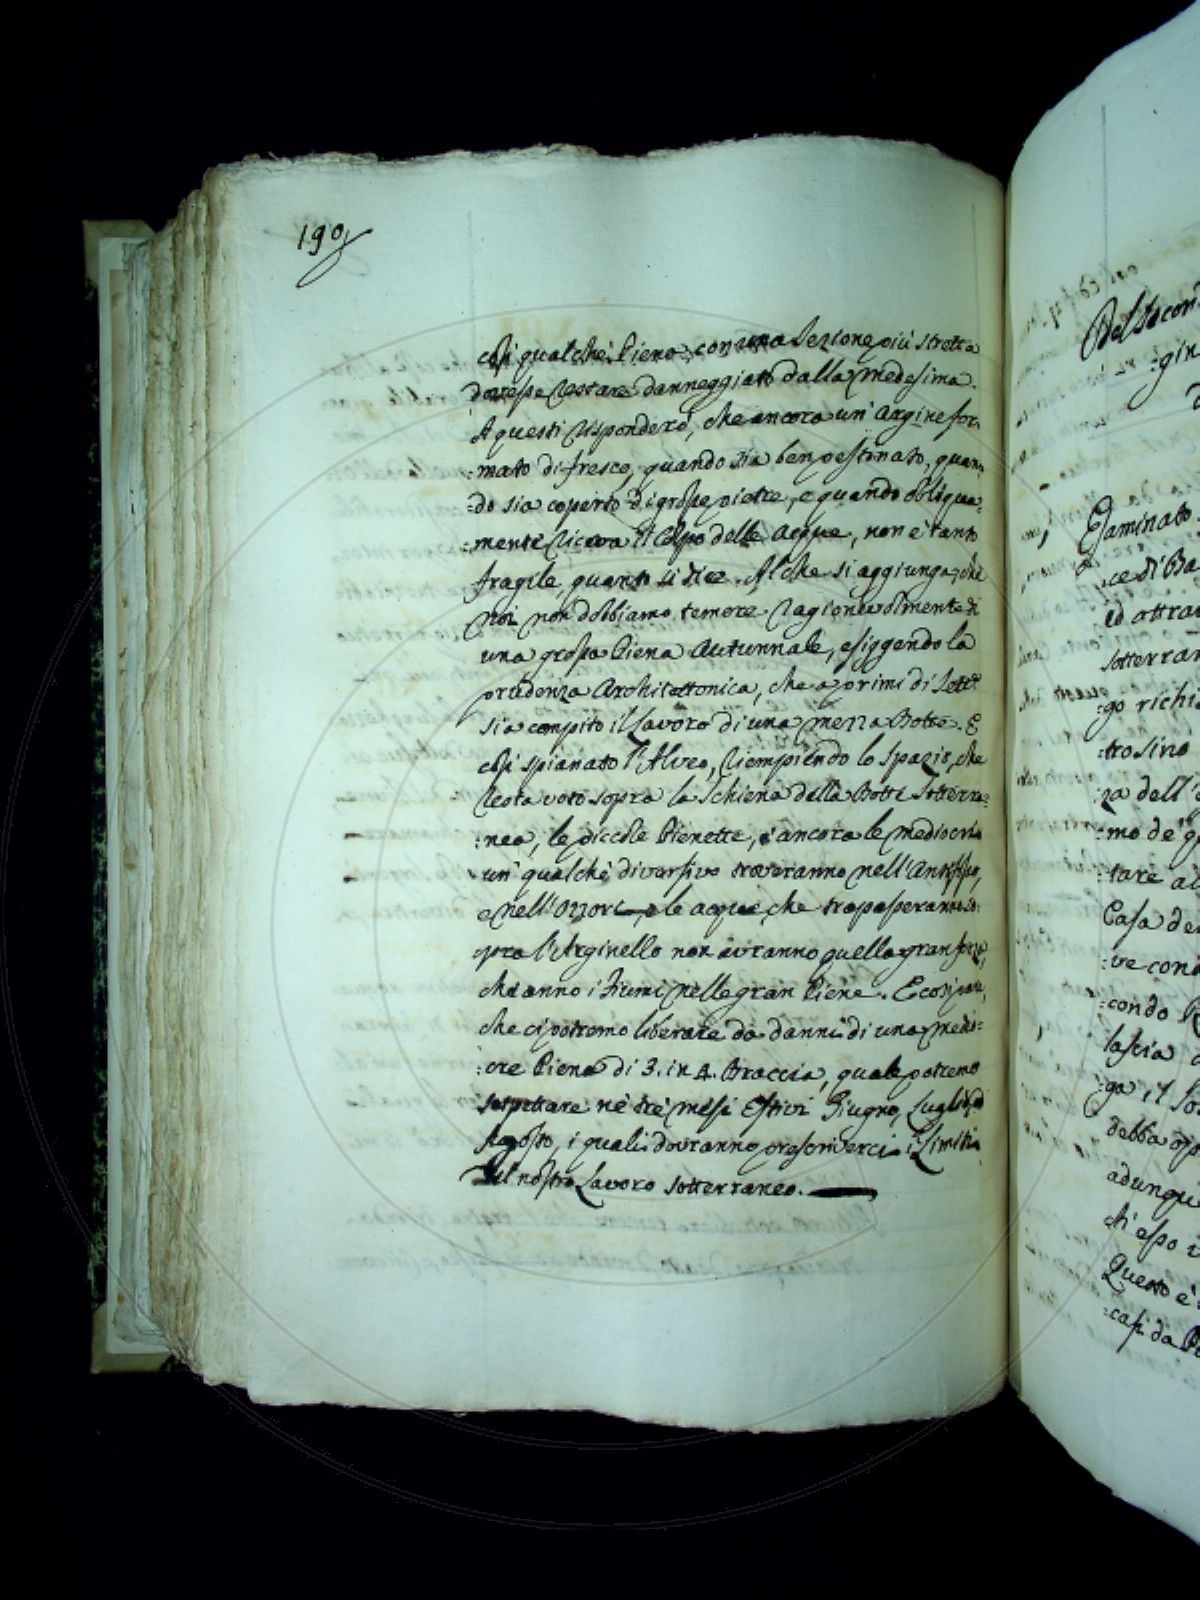 190
così qualche Piena con una Sezione più stretta
dovesse restare danneggiato dalla medesima.
A questi risponderò, che ancora un' Argine for-
:mato di fresco, quando sia ben pestinato, quan:
:do sia coperto di grosse pietre, e quando obliqua:
:mente riceva il Colpo delle Acque, non è tanto
fragile, quanto si dice. Al che si aggiunga, che
Noi non dobbiamo temere ragionevolmente di
una grossa Piena Autunnale, esiggendo la
prudenza Architettonica, che a primi di Sette
sia compito il Lavoro di una mezza Botte. E
così spianato l'Alveo, riempiendo lo spazio, che
resta voto sopra la Schiena della Botte Sotterra:
:nea, le piccole Pienette, e ancora le mediocri
un qualche diversivo troveranno nell'
e nell'Ozzori, e le acque, che trapasseranno so:
:pra l'Arginello non avranno quella gran forza,
che anno i Fiumi nelle gran Piene. E così pare,
che ci potremo liberare da danni di una medio:
:cre Piena di 3. in 4. Braccia, quale potremo
sospettare ne tre mesi Estivi Giugno, Luglio, ed
Agosto, i quali dovranno prescriverci i Limiti
del nostro Lavoro Sotterraneo.
Del Secon
:gin
Esaminato
:ce di Ba
ed ottra
sotterran
:go richi
:trosino
:za dell'
:mo de' q
:tare al
Casa de
:ve cond
:condo
lascia
:ga, e so
debba op
adunque
di esso i
Questo è
:casi da